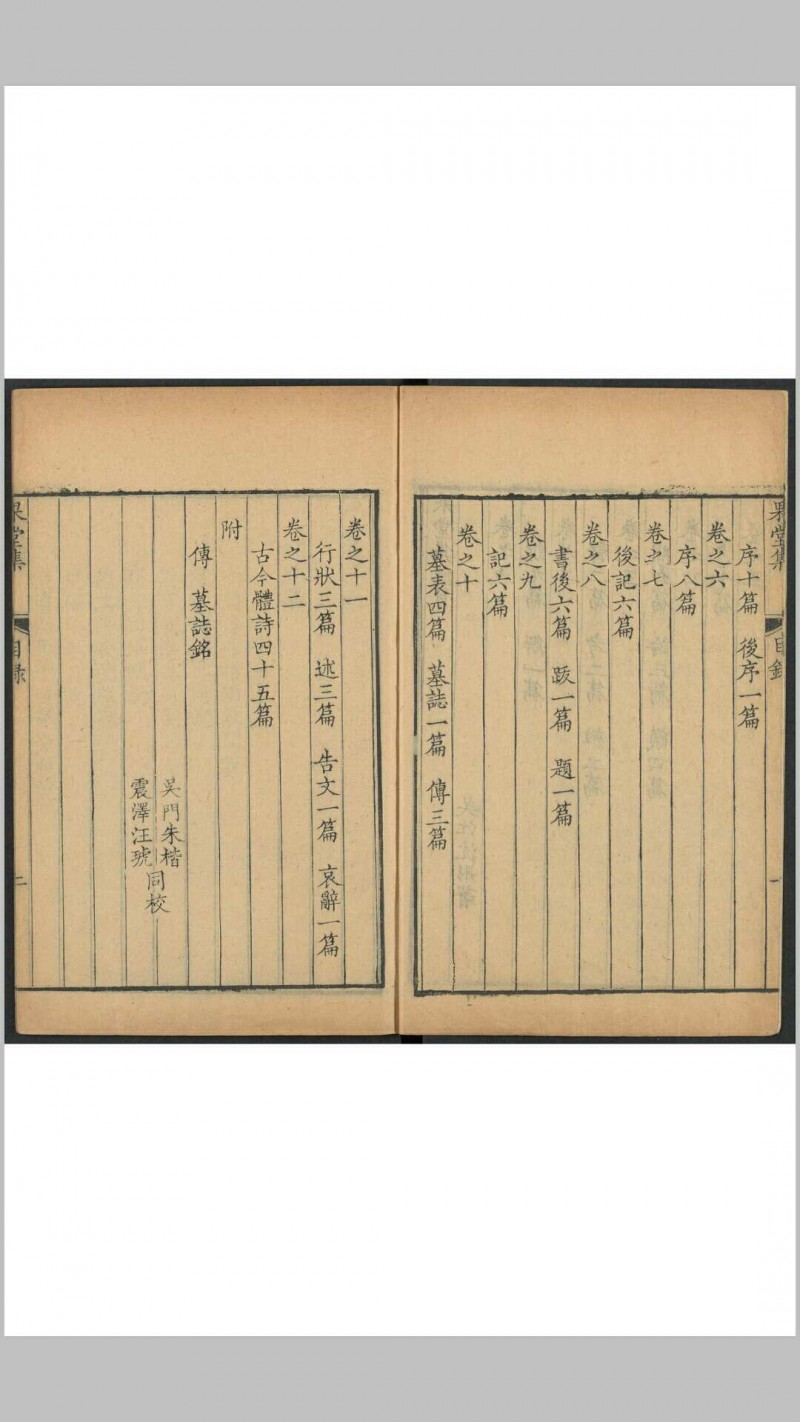 果堂集 目錄 一
序十篇 後序一篇
卷之六
序八篇
卷之七
後記六篇
卷之八
書後六篇 跋一篇 題一篇
卷之九
記六篇
卷之十
墓表四篇 墓誌一篇 傳三篇
卷之十一
行狀三篇 述三篇 告文一篇 哀辭一篇
卷之十二
古今體詩四十五篇
附
傳 墓誌銘
吳門朱楷
震澤汪琥
同校
果堂集 目錄 二